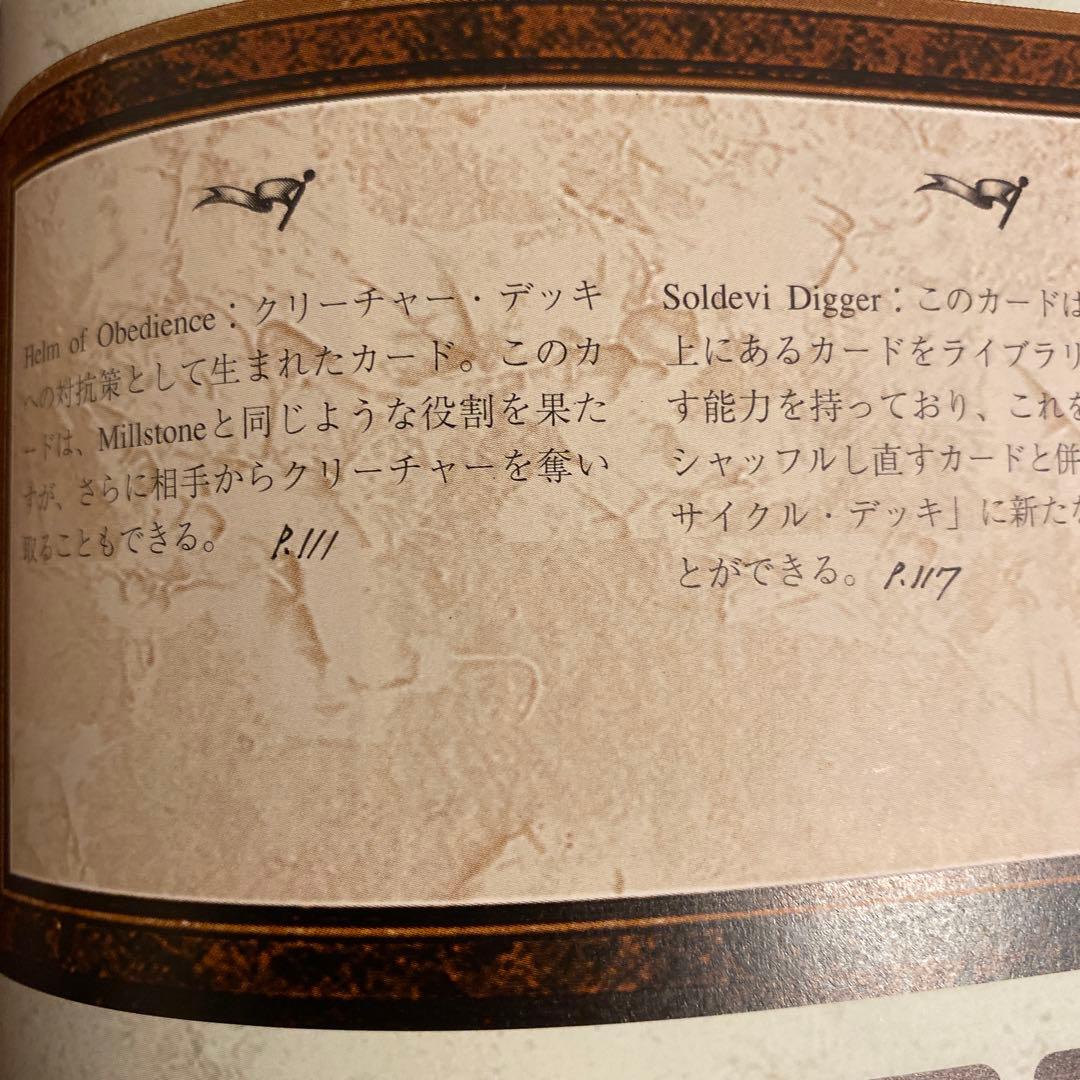 Helm of Obedience：クリーチャー・デッキ
への対抗策として生まれたカード。このカ
ードは、Millstoneと同じような役割を果た
すが、さらに相手からクリーチャーを奪い
取ることもできる。 P.111
Soldevi Digger：このカードは
上にあるカードをライブラリ
す能力を持っており、これを
シャッフルし直すカードと併
サイクル・デッキ」に新たな
とができる。 P.117